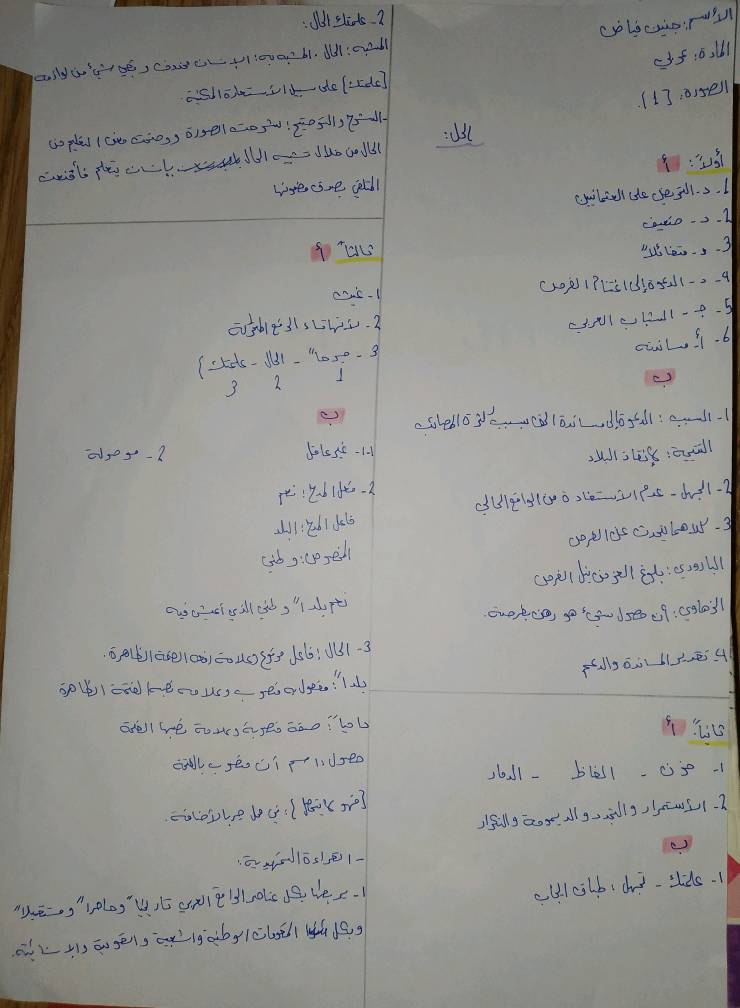 الأسم: جنين فياض
المادة: عربي
الصورة: [1].
الحل:
أولاً: أ
1- د- التحريض على العثمانيين
2- د- ضعيف
3- د- متفائلاً
4- د- الدعوة إلى اغتنام الفرص
5- جـ - الشباب العربي
6- أ- مساندته
ب
1- السبب: الدعوة إلى مساندة الحق بسبب كثرة المصائب
النتيجة: لإنقاذ البلاد
2- الجهل - عدم الأستفادة من الواقع الحالي
3- كلاهما يتحدث عن الفرص
البارودي: بلوغ العز من نيل الفرص
الزهاوي: أن حصول شيء هو رهن بفرصته.
4- تقدير المساندة والدعم
ثانياً: أ
1- حزن - الفاظ - الدمار
2- الأستمرار والتجدد والديمومة والتكرار
ب
1- علمتك - تجهل: طباق ايجاب
2- علمتك الحال:
المشبه: الحال. المشبه به: الإنسان محذوف وبقي شيء من لوازمه
[علمتك] على سبيل الأستعارة المكنية.
- الشرح والتوضيح: شرحت الصورة ووضحت معنى التعليم من
الحال من خلال تشبيه الحال بإنسان يتعلم فأقنعت
المتلقي بصدق مضمونها
ثالثاً أ
1- غيث
2- لأنها تاء الرفع المتحركة
3- جرحاً - الحال - علمتك}
1 2 3
ب
1-1- غير عاقل 2- موصولة
2- فعل المدح: نعم
فاعل المدح: البلد
المخصوص: وطني
نعم بلداً وطني الذي أعيش فيه
3- الحال: فاعل مرفوع وعلامة رفعه الضمة الظاهرة.
بلداً: مفعول به منصوب وعلامة نصبه الفتحة الظاهرة
حامياً: صفة منصوبة وعلامة نصبها الفتحة
حصول: اسم أن منصوب بالفتحة
[فهو لا يتحمل]: في محل جر بالأضافة.
- القراءة التمهيدية:
1- يربطها بكل عناصر الواقع العربي تاريخياً وحاضراً ومستقبلاً
وبكل المقومات الوطنية والشعبية والقومية والإنسانية.